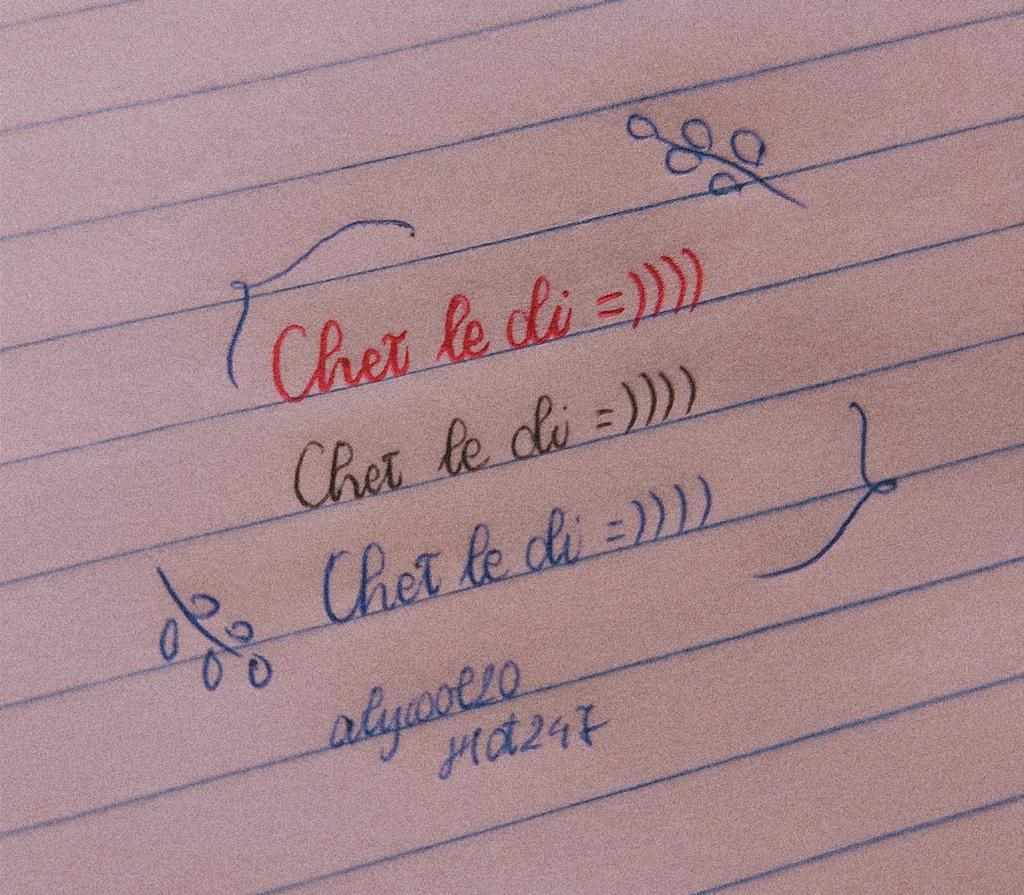 Chet le di =))))
Chet le di =))))
Chet le di =))))
247